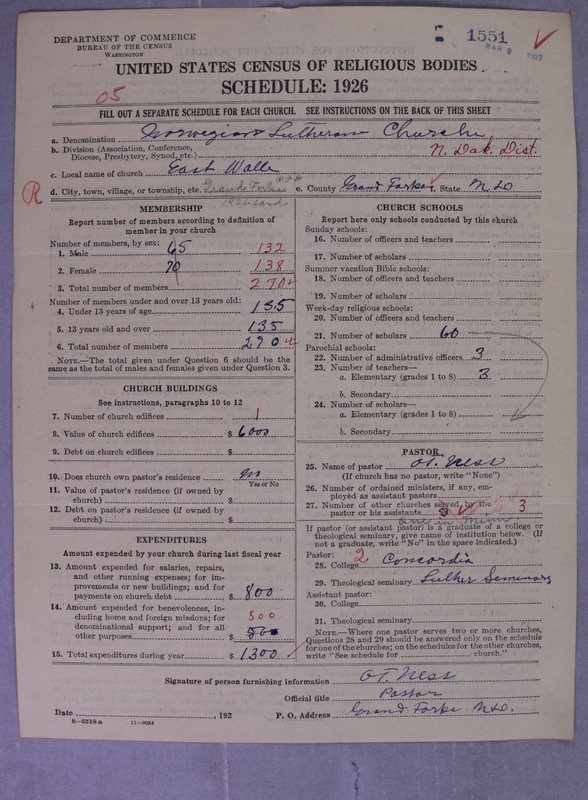 DEPARTMENT OF COMMERCE
BUREAU OF THE CENSUS
WASHINGTON
1551
MAR 8 1927
UNITED STATES CENSUS OF RELIGIOUS BODIES
SCHEDULE: 1926
05
FILL OUT A SEPARATE SCHEDULE FOR EACH CHURCH. SEE INSTRUCTIONS ON THE BACK OF THIS SHEET
a. Denomination Norwegian Lutheran Church
b. Division (Association, Conference, Diocese, Presbytery, Synod, etc.) N. Dak. Dist.
c. Local name of church East Walle
d. City, town, village, or township, etc. Grand Forks e. County Grand Forks State N.D.
R
1926 card
MEMBERSHIP
Report number of members according to definition of member in your church
Number of members, by sex:
1. Male 65 132
2. Female 70 138
3. Total number of members 270
Number of members under and over 13 years old:
4. Under 13 years of age 135
5. 13 years old and over 135
6. Total number of members 270
NOTE.—The total given under Question 6 should be the same as the total of males and females given under Question 3.
CHURCH BUILDINGS
See instructions, paragraphs 10 to 12
7. Number of church edifices 1
8. Value of church edifices $ 6000
9. Debt on church edifices $
10. Does church own pastor's residence No
Yes or No
11. Value of pastor's residence (if owned by church) $
12. Debt on pastor's residence (if owned by church) $
EXPENDITURES
Amount expended by your church during last fiscal year
13. Amount expended for salaries, repairs, and other running expenses; for improvements or new buildings; and for payments on church debt $ 800
14. Amount expended for benevolences, including home and foreign missions; for denominational support; and for all other purposes $ 500
500
15. Total expenditures during year $ 1300
CHURCH SCHOOLS
Report here only schools conducted by this church
Sunday schools:
16. Number of officers and teachers
17. Number of scholars
Summer vacation Bible schools:
18. Number of officers and teachers
19. Number of scholars
Week-day religious schools:
20. Number of officers and teachers
21. Number of scholars 60
Parochial schools:
22. Number of administrative officers 3
23. Number of teachers—
a. Elementary (grades 1 to 8) 3
b. Secondary
24. Number of scholars—
a. Elementary (grades 1 to 8)
b. Secondary
PASTOR
25. Name of pastor O.T. Ness
(If church has no pastor, write "None")
26. Number of ordained ministers, if any, employed as assistant pastors
27. Number of other churches served by the pastor or his assistants 3
one in Minn
If pastor (or assistant pastor) is a graduate of a college or theological seminary, give name of institution below. (If not a graduate, write "No" in the space indicated.)
Pastor: 2
28. College Concordia
29. Theological seminary Luther Seminary
Assistant pastor:
30. College
31. Theological seminary
NOTE.—Where one pastor serves two or more churches, Questions 28 and 29 should be answered only on the schedule for one of the churches; on the schedules for the other churches, write "See schedule for church."
Signature of person furnishing information O.T. Ness
Official title Pastor
Date , 192 P. O. Address Grand Forks N.D.
8—5518 a 11—9084